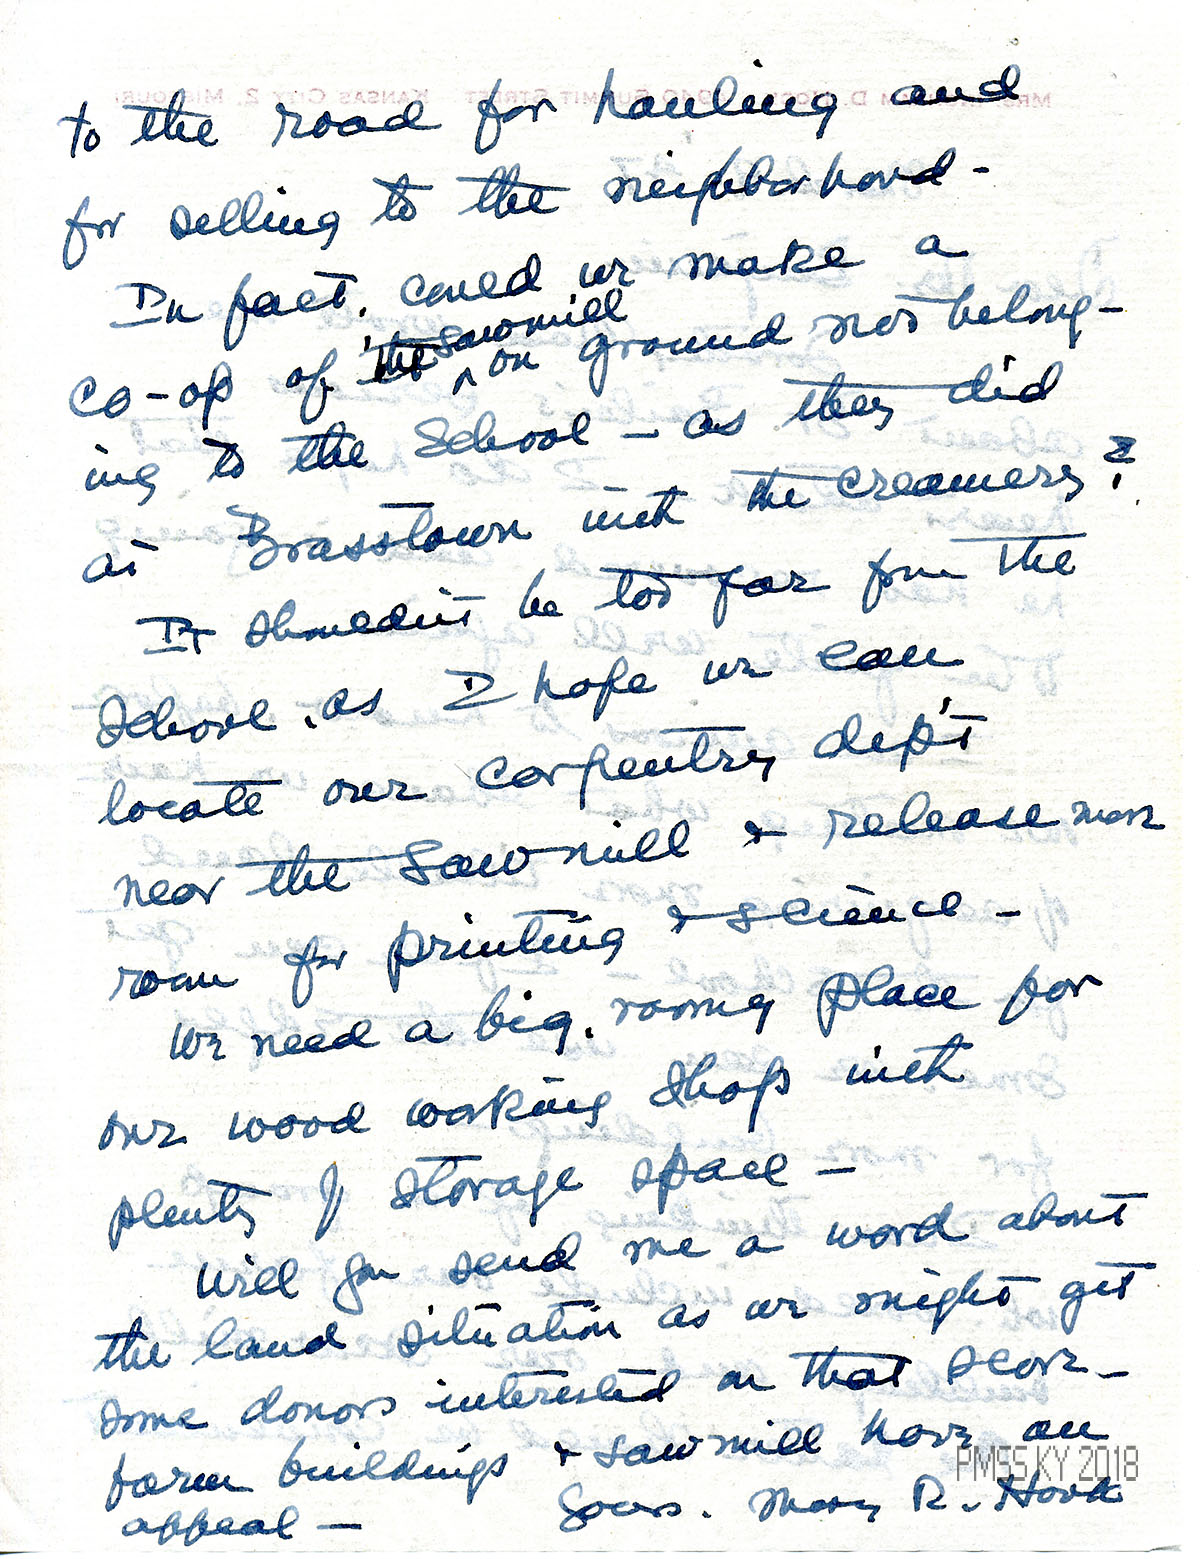 to the road for hauling and
for selling to the neighborhood -
In fact, could we make a
co-op of the sawmill on ground not belong-
ing to the School - as they did
at Brasstown with the creamery?
It shouldn't be too far from the
School, as I hope we can
locate our carpentry dep't
near the sawmill & release more
room for printing & science -
We need a big, roomy place for
our wood working shop with
plenty of storage space -
Will you send me a word about
the land situation as we might get
some donors interested on that score -
farm buildings & sawmill have an
appeal - Yours, Mary R. Hook
PMSS KY 2018